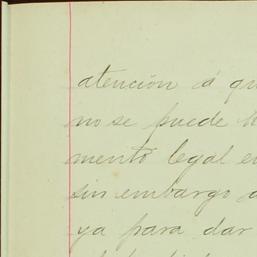 atención á qu
no se puede h
mento legal en
sin embargo a
ya para dar